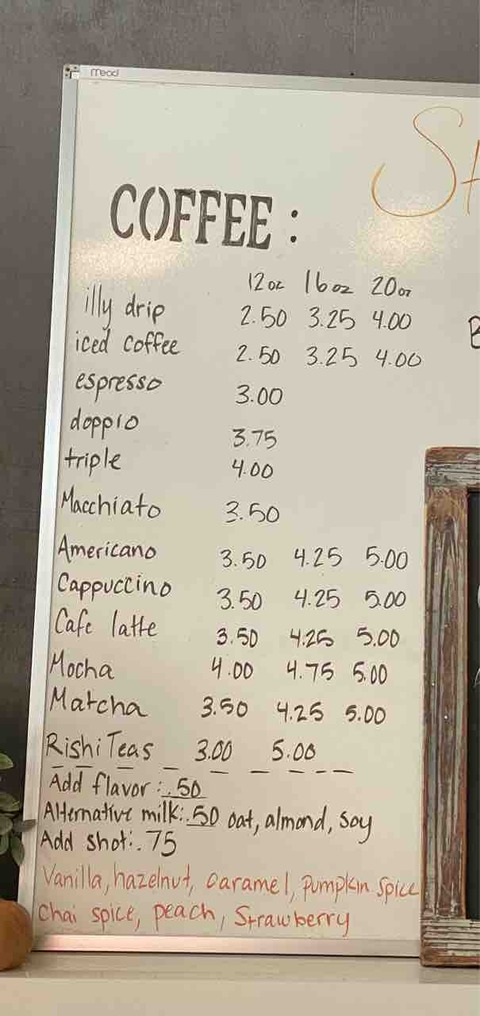 mead
St
COFFEE :
12oz 16oz 20oz
illy drip 2.50 3.25 4.00
iced coffee 2.50 3.25 4.00
espresso 3.00
doppio 3.75
triple 4.00
Macchiato 3.50
Americano 3.50 4.25 5.00
Cappuccino 3.50 4.25 5.00
Cafe latte 3.50 4.25 5.00
Mocha 4.00 4.75 5.00
Matcha 3.50 4.25 5.00
Rishi Teas 3.00 5.00
Add flavor: .50
Alternative milk: .50 oat, almond, soy
Add shot: .75
Vanilla, hazelnut, caramel, pumpkin spice
Chai spice, peach, strawberry